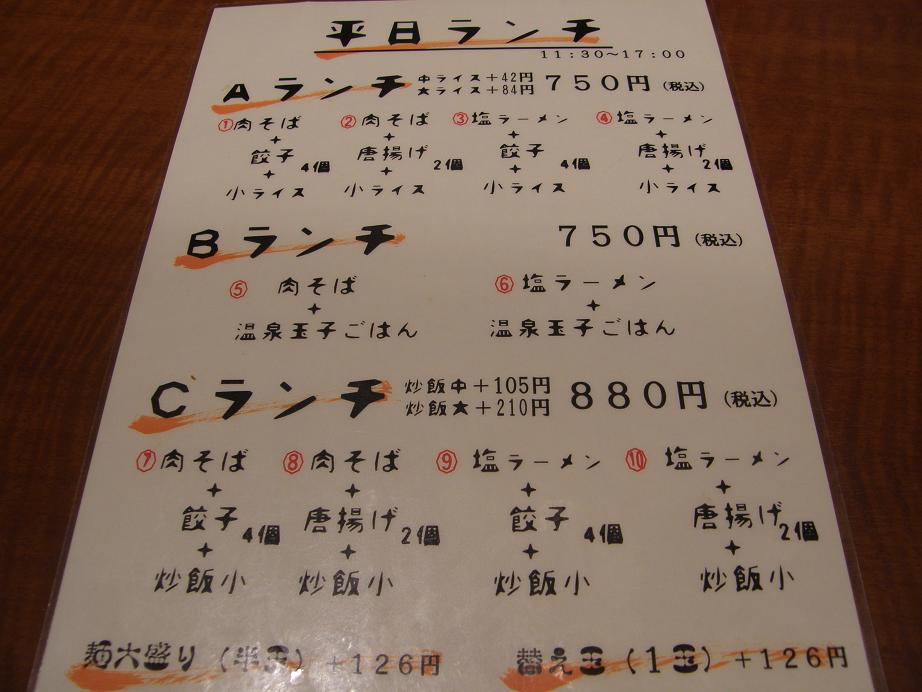 平日ランチ
11:30~17:00
Aランチ 中ライス+42円 大ライス+84円 750円 (税込)
①肉そば ②肉そば ③塩ラーメン ④塩ラーメン
+ + + +
餃子4個 唐揚げ2個 餃子4個 唐揚げ2個
+ + + +
小ライス 小ライス 小ライス 小ライス
Bランチ 750円 (税込)
⑤ 肉そば ⑥ 塩ラーメン
+ +
温泉玉子ごはん 温泉玉子ごはん
Cランチ 炒飯中+105円 炒飯大+210円 880円 (税込)
⑦肉そば ⑧肉そば ⑨塩ラーメン ⑩塩ラーメン
+ + + +
餃子4個 唐揚げ2個 餃子4個 唐揚げ2個
+ + + +
炒飯小 炒飯小 炒飯小 炒飯小
麺大盛り(半玉)+126円 替え玉(1玉)+126円